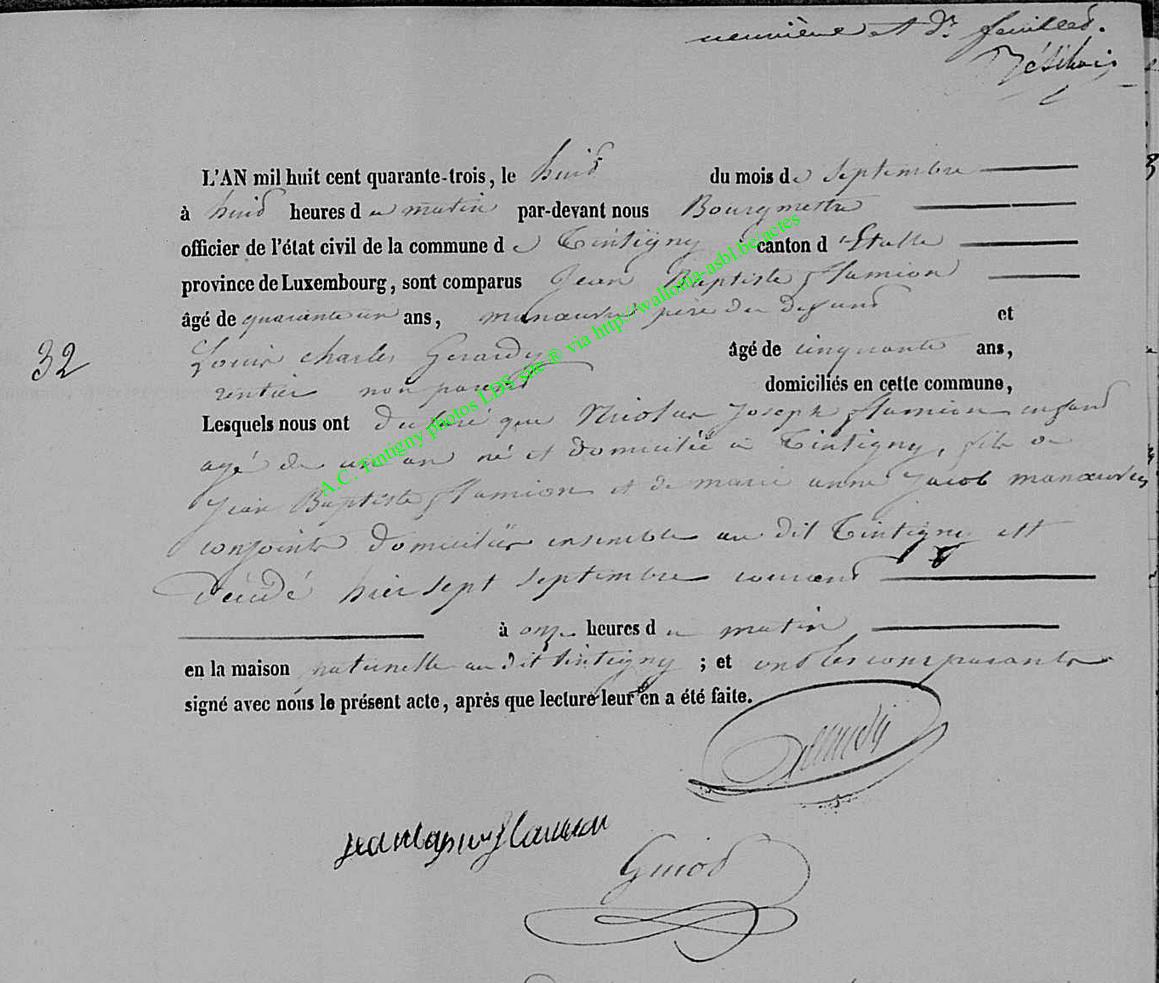 neuvième et dr feuillet.
L'AN mil huit cent quarante-trois, le huit du mois de Septembre
à huit heures du matin par-devant nous Bourgmestre
officier de l'état civil de la commune de Tintigny canton d'Etalle
province de Luxembourg, sont comparus Jean Baptiste flamion
âgé de quarante un ans, manœuvre père du defunt et
32
Louis Charles Gerardy âgé de cinquante ans,
rentier non parent domiciliés en cette commune,
Lesquels nous ont declaré que Nicolas Joseph flamion enfant
agé de un an né et domicilié à Tintigny, fils de
Jean Baptiste flamion et de marie anne Jacob manœuvres
conjoints domiciliés ensemble au dit Tintigny est
décédé hier sept septembre courant
à onze heures du matin
en la maison paternelle au dit Tintigny ; et ont les comparants
signé avec nous le présent acte, après que lecture leur en a été faite.
flamion
Guiot
A.C. Tintigny photos LDS site ® via http://wallonia-asbl.be/actes